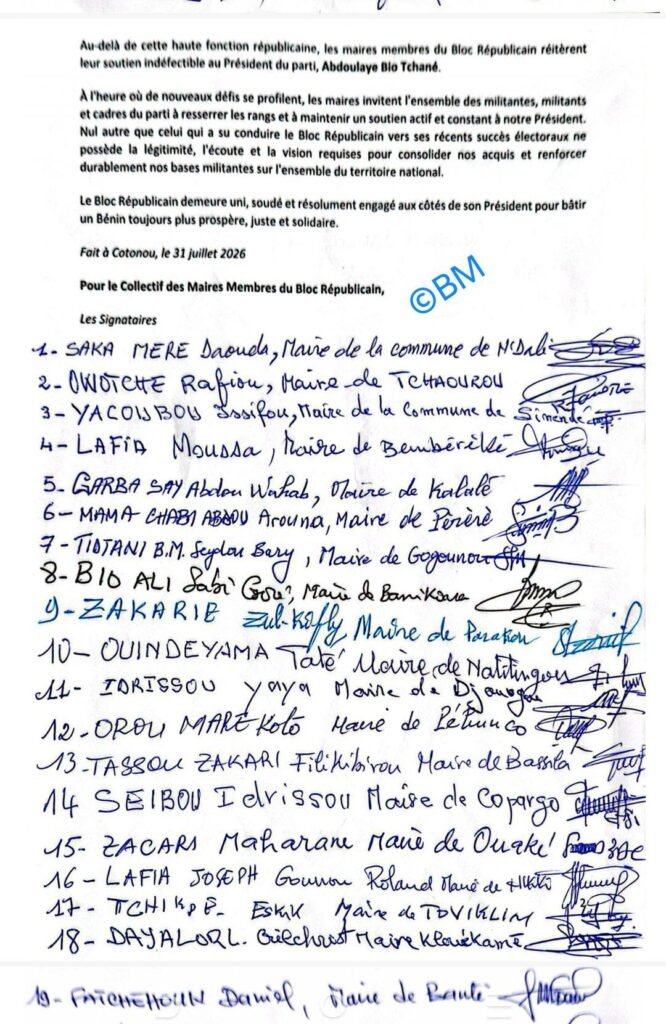 Au-delà de cette haute fonction républicaine, les maires membres du Bloc Républicain réitèrent
leur soutien indéfectible au Président du parti, Abdoulaye Bio Tchané.
À l'heure où de nouveaux défis se profilent, les maires invitent l'ensemble des militantes, militants
et cadres du parti à resserrer les rangs et à maintenir un soutien actif et constant à notre Président.
Nul autre que celui qui a su conduire le Bloc Républicain vers ses récents succès électoraux ne
possède la légitimité, l'écoute et la vision requises pour consolider nos acquis et renforcer
durablement nos bases militantes sur l'ensemble du territoire national.
Le Bloc Républicain demeure uni, soudé et résolument engagé aux côtés de son Président pour bâtir
un Bénin toujours plus prospère, juste et solidaire.
Fait à Cotonou, le 31 juillet 2026
©BM
Pour le Collectif des Maires Membres du Bloc Républicain,
Les Signataires
1- SAKA MERE Daouda, Maire de la commune de N'Dali
2- OWOTCHE Rafiou, Maire de TCHAOUROU
3- YACOUBOU Issifou, Maire de la Commune de Sinendé
4- LAFIA Moussa, Maire de Bembérèkè
5- GARBA SAY Abdou Wahab, Maire de Kalalé
6- MAMA CHABI ABDOU Arouna, Maire de Pèrèrè
7- TIDJANI B.M. Seydou Bery, Maire de Gogounou
8- BIO ALI Sabi Goré, Maire de Banikoara
9- ZAKARIE Zul-Kifly Maire de Parakou
10- OUINDEYAMA Taté Maire de Natitingou
11- IDRISSOU yaya Maire de Djougou
12- OROU MARE Koto Maire de Péhunco
13- TASSOU ZAKARI Filikibirou Maire de Bassila
14 SEIBOU Idrissou Maire de Copargo
15- ZACARI Maharane Maire de Ouaké
16- LAFIA JOSEPH Gounou Roland Maire de Nikki
17- TCHIKPE Maire de TOVIKLIN
18- Gilchrist Maire Klouékamè
19- Daniel, Maire de Banté